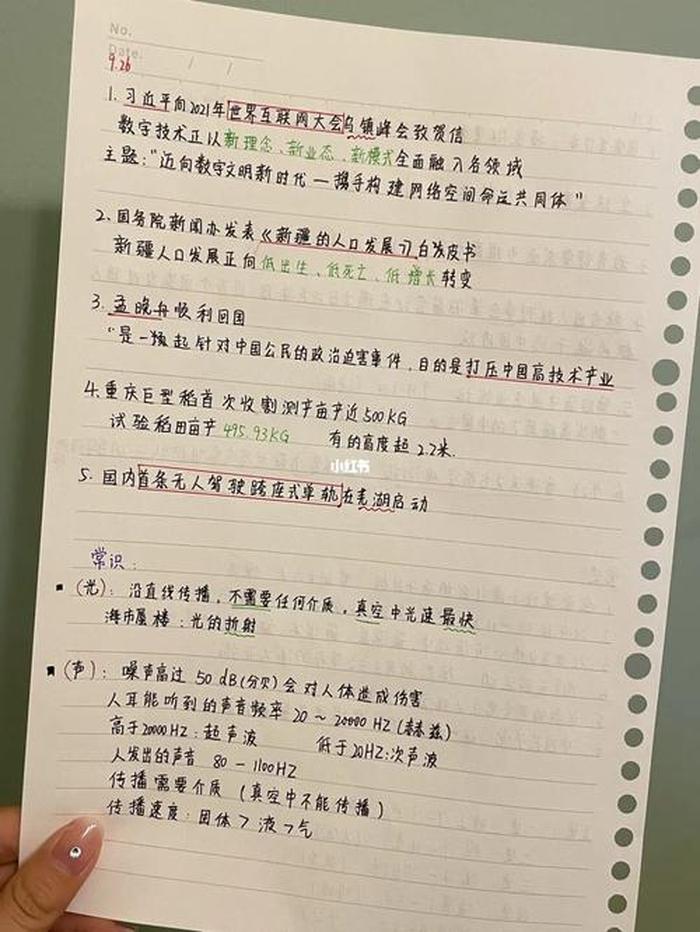 No.
Date. / /
9.26
1. 习近平向2021年世界互联网大会乌镇峰会致贺信
数字技术正以新理念、新业态、新模式全面融入各领域
主题:"迈向数字文明新时代—携手构建网络空间命运共同体"
2. 国务院新闻办发表《新疆的人口发展》白皮书
新疆人口发展正向低出生、低死亡、低增长转变
3. 孟晚舟顺利回国
"是一项起针对中国公民的政治迫害事件,目的是打压中国高技术产业
4. 重庆巨型稻首次收割测产亩产近500KG
试验稻田亩产495.93KG 有的高度超2.2米.
小红书
5. 国内首条无人驾驶跨座式单轨在芜湖启动
常识:
(光): 沿直线传播,不需要任何介质,真空中光速最快
海市蜃楼:光的折射
(声): 噪声高过 50 dB(分贝)会对人体造成伤害
人耳能听到的声音频率 20~20000HZ(赫兹)
高于20000HZ:超声波 低于20HZ:次声波
人发出的声音 80-1100HZ
传播需要介质 (真空中不能传播)
传播速度:固体>液>气